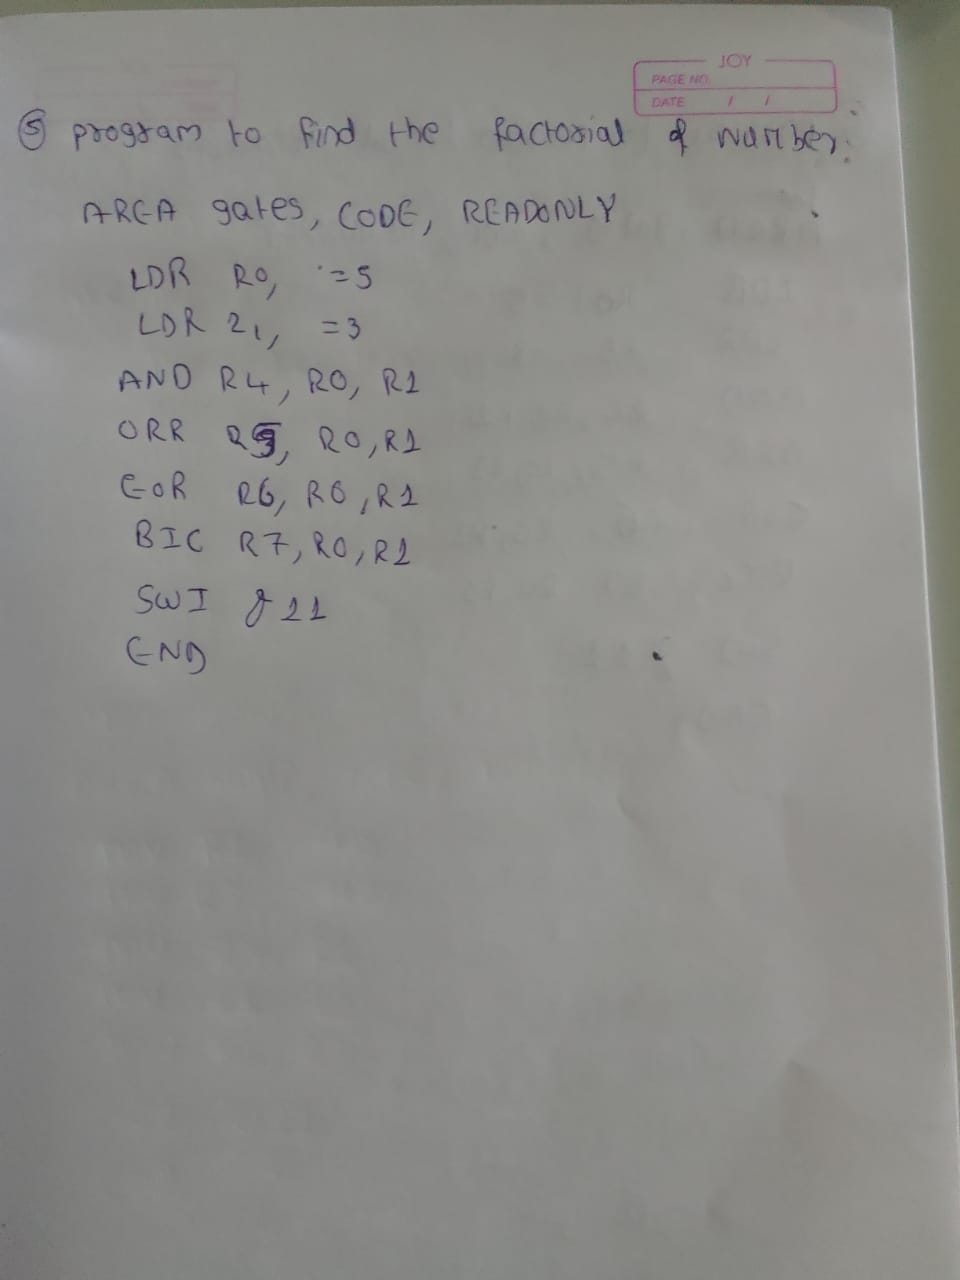 JOY
PAGE NO.
DATE / /
⑤ program to find the factorial of number:
AREA gates, CODE, READONLY
LDR R0, =5
LDR R1, =3
AND R4, R0, R1
ORR R5, R0, R1
EOR R6, R0, R1
BIC R7, R0, R1
SWI &11
END